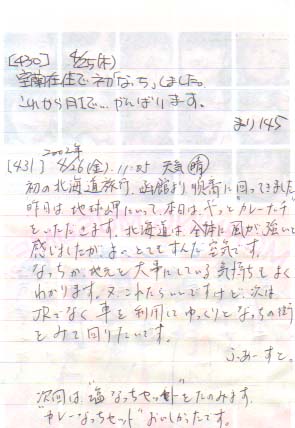 [430] 4/25(木)
室蘭在住で初「なっち」しました。
これから月1で…がんばります。
まり145
2002年
[431] 4/26(金) 11:05 天気(晴)
初の北海道旅行、函館より順番に回ってきました
昨日は地球岬にいって、本日は、やっと"カレーナッチ"
をいただきます。北海道は全体に風が強いと
感じましたが、とてもすんだ空気です。
なっちが地元を大事にしている気持ちもよく
わかります。又、これたらいいですけど、次は
JRでなく車を利用してゆっくりとなっちの街
をみて回りたいです。
ふぁーすと。
次回は"塩なっちセット"をたのみます。
"カレーなっちセット"おいしかったです。